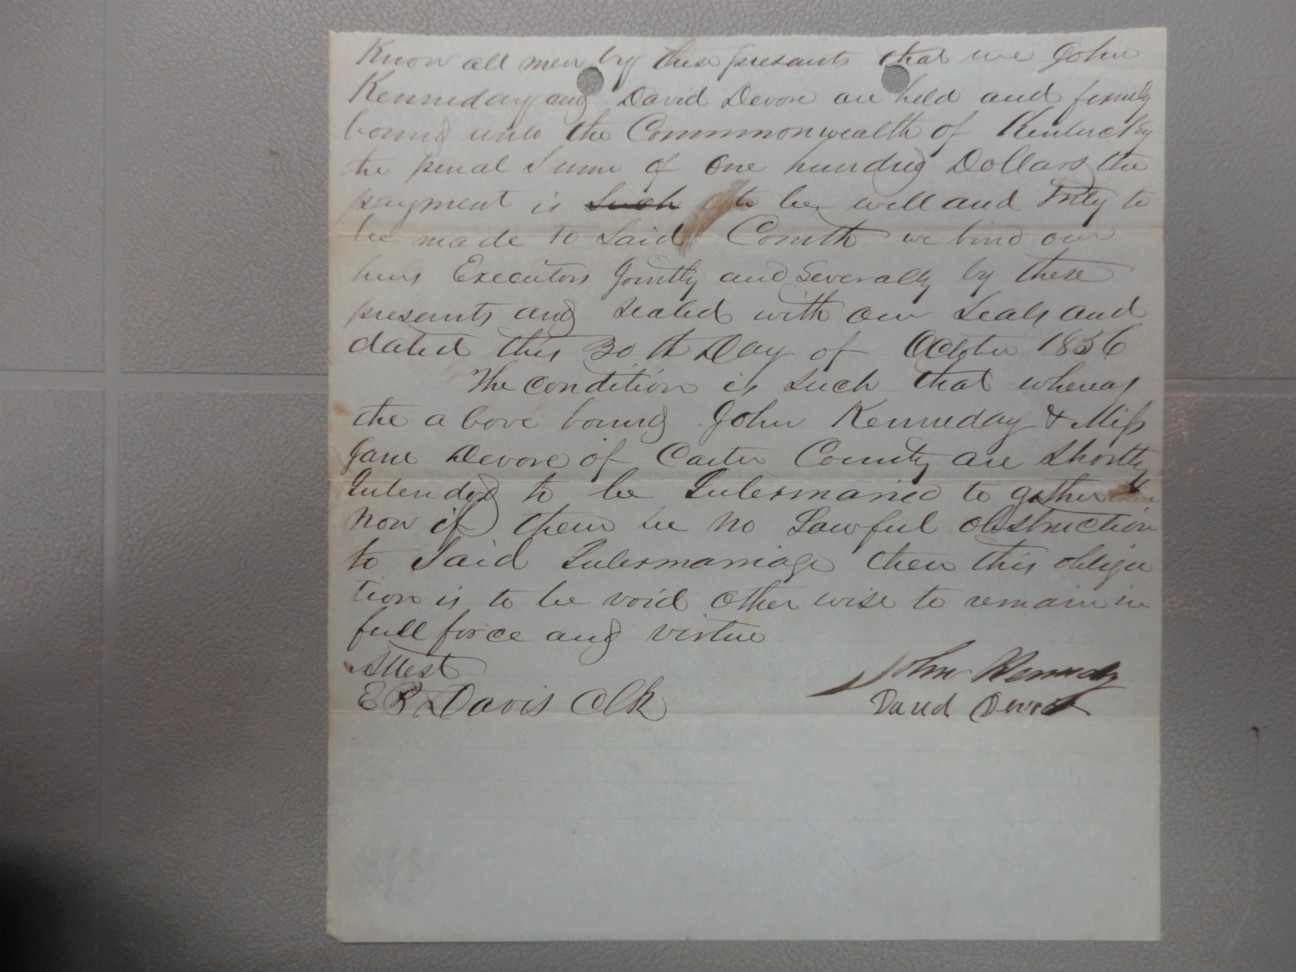 Know all men by these presents that we John
Kenneday and David Devore are held and firmly
bound unto the Commmonwealth of Kentucky
the penal Sum of One hundred Dollars the
payment is such to be well and truly to
be made to Said Comth we bind our
heirs Executors Jointly and Severally by these
presents and sealed with our Seals and
dated this 30th Day of October 1856
The condition is such that whereas
the above bound John Kenneday & Miss
Jane Devore of Carter County are shortly
Intended to be Intermarried to gather
Now if there be no Lawful obstruction
to Said Intermarriage then this obliga
tion is to be void other wise to remain in
full force and virtue
Attest
E B Davis Clk
John Kennedy
David Devore